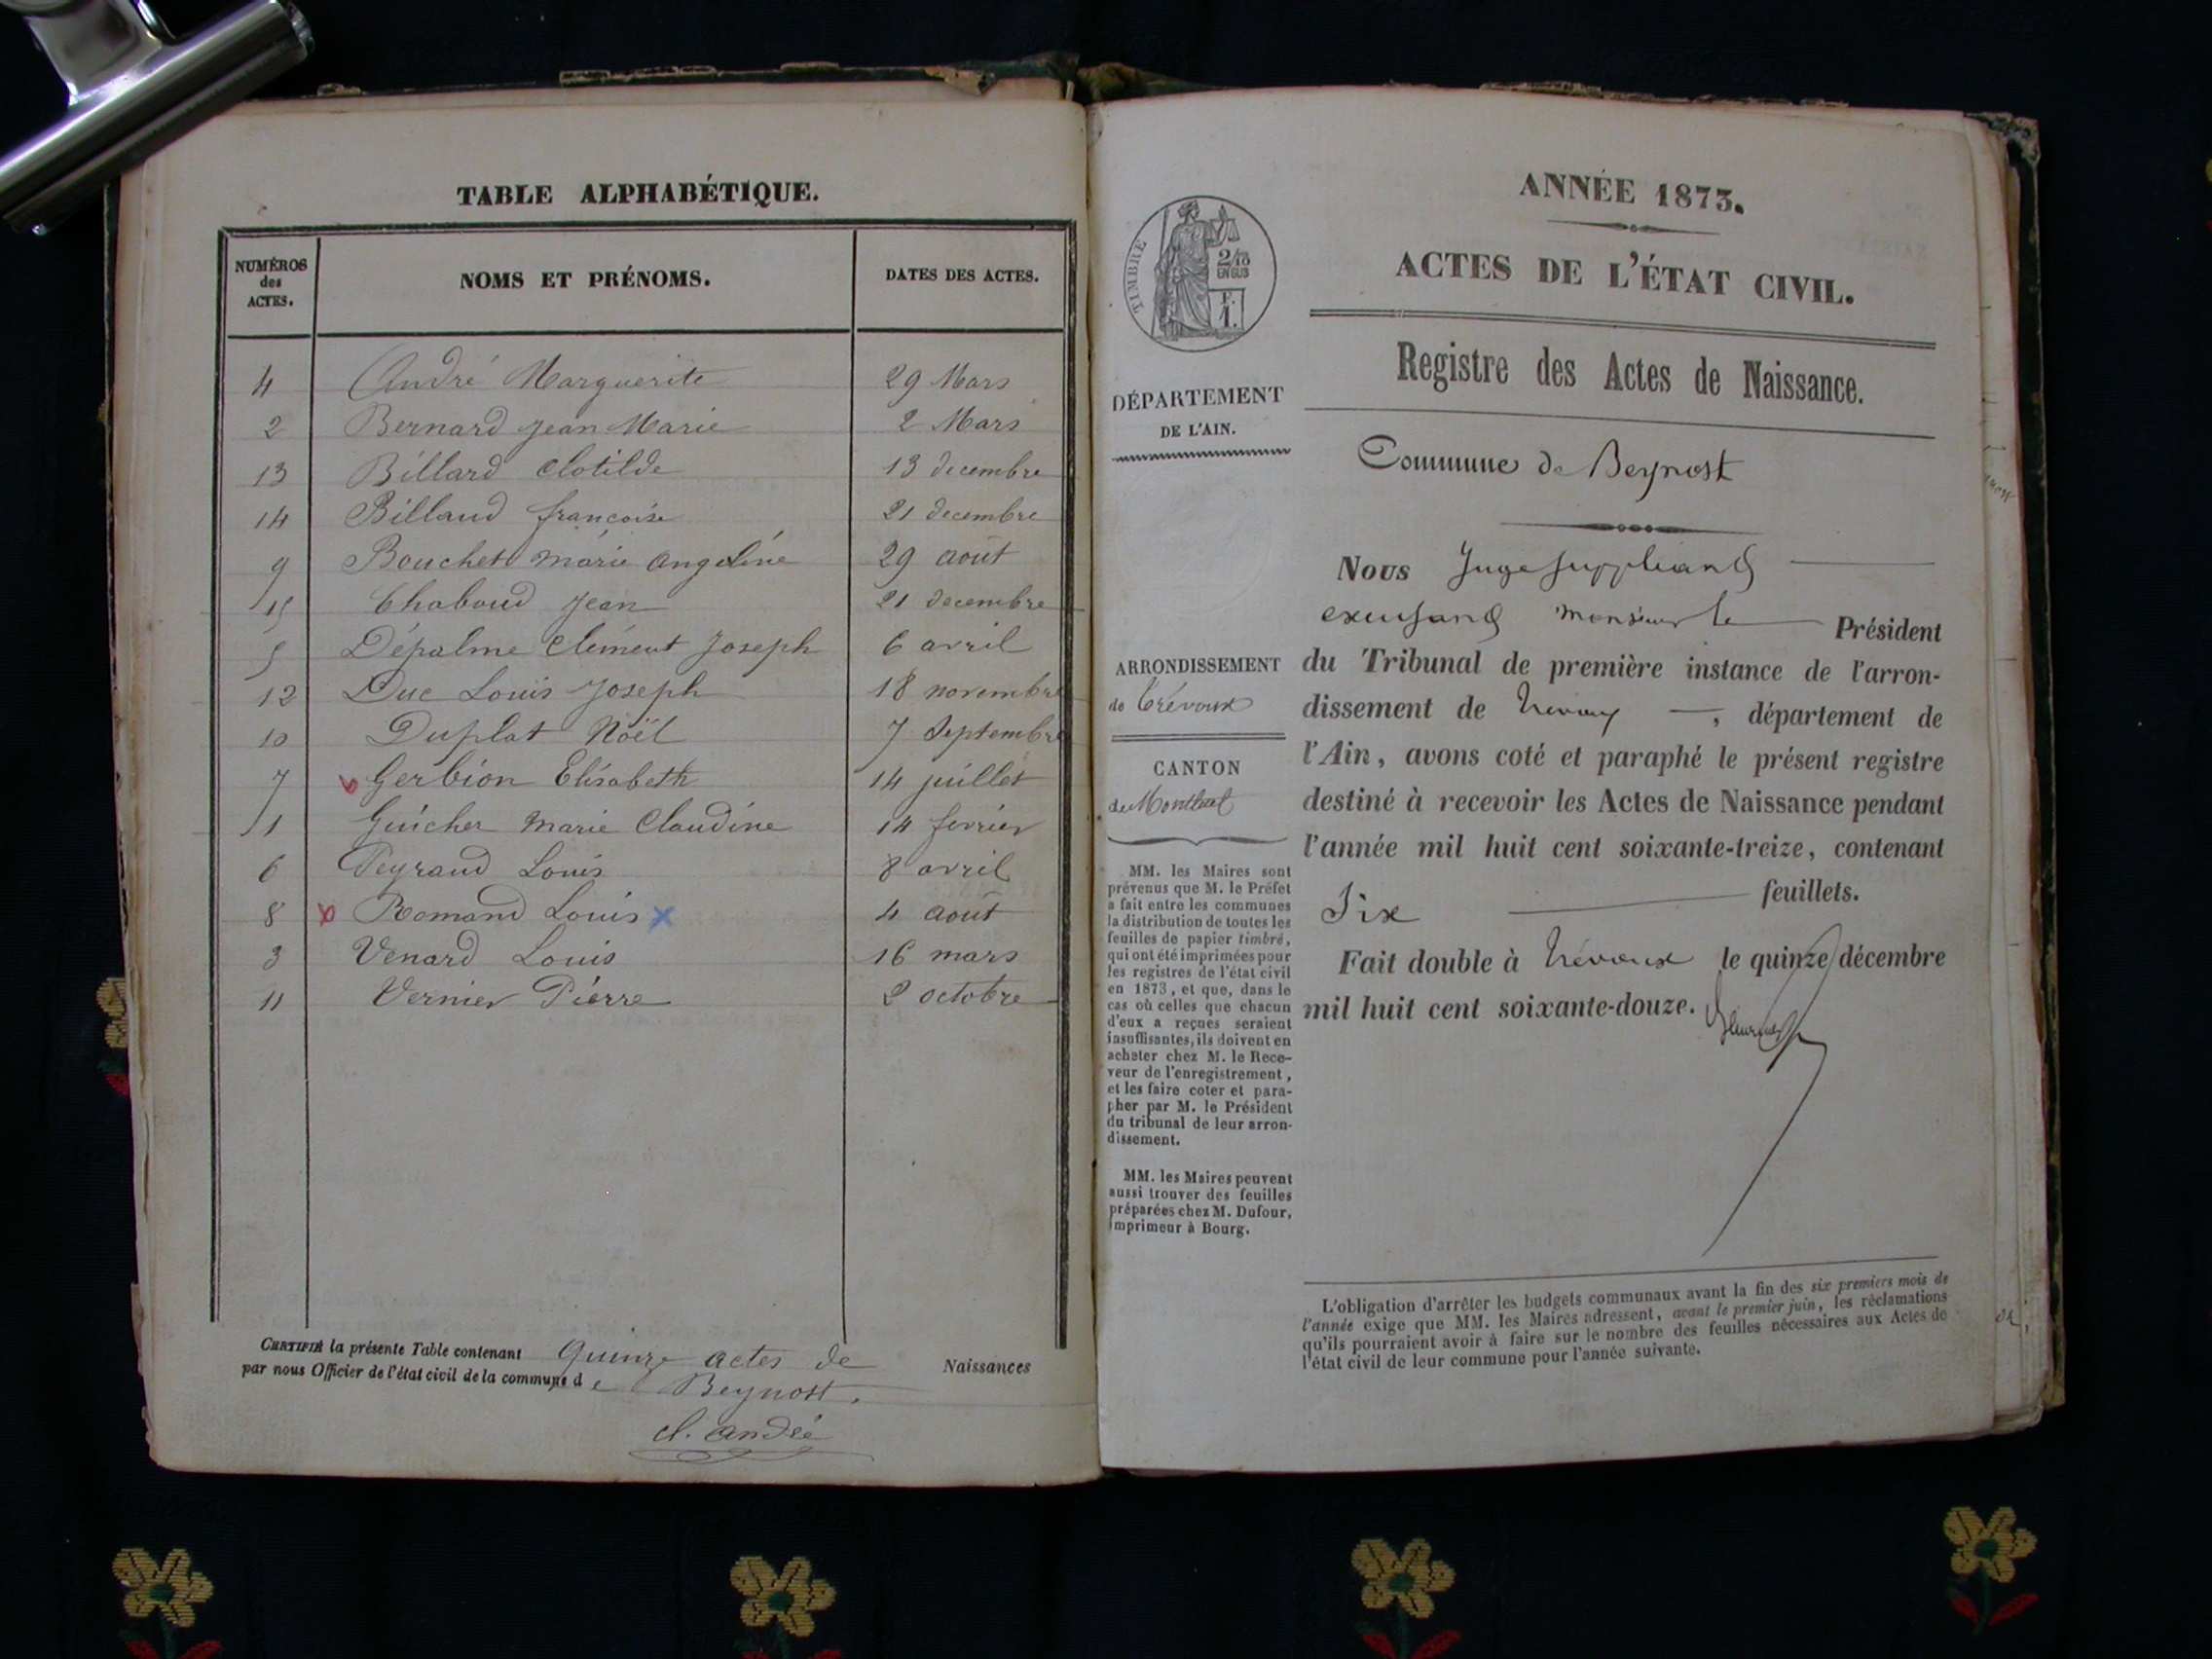 TABLE ALPHABÉTIQUE.
NUMÉROS des ACTES. NOMS ET PRÉNOMS. DATES DES ACTES.
4 André Marguerite 29 Mars
2 Bernard Jean Marie 2 Mars
13 Billard Clotilde 13 decembre
14 Billaud françoise 21 decembre
9 Bouchet marie angeline 29 août
15 Chaboud Jean 21 decembre
5 Dépalme Clément Joseph 6 avril
12 Duc Louis Joseph 18 novembre
10 Duplat Noël 7 Septembre
7 Gerbion Elisabeth 14 juillet
1 Guicher Marie Claudine 14 fevrier
6 Peyraud Louis 8 avril
8 Romand Louis 4 août
3 Venard Louis 16 mars
11 Vernier Pierre 2 octobre
CERTIFIÉ la présente Table contenant Quinze actes de Naissances
par nous Officier de l'état civil de la commune de Beynost.
cl. andré
TIMBRE
2/10
EN SUS
F.
1.
DÉPARTEMENT
DE L'AIN.
ARRONDISSEMENT
de Trévoux
CANTON
de Montluel
MM. les Maires sont
prévenus que M. le Préfet
a fait entre les communes
la distribution de toutes les
feuilles de papier timbré,
qui ont été imprimées pour
les registres de l'état civil
en 1873, et que, dans le
cas où celles que chacun
d'eux a reçues seraient
insuffisantes, ils doivent en
acheter chez M. le Rece-
veur de l'enregistrement,
et les faire coter et para-
pher par M. le Président
du tribunal de leur arron-
dissement.
MM. les Maires peuvent
aussi trouver des feuilles
préparées chez M. Dufour,
imprimeur à Bourg.
ANNÉE 1873.
ACTES DE L'ÉTAT CIVIL.
Registre des Actes de Naissance.
Commune de Beynost
Nous Juge suppléant
excusant monsieur le Président
du Tribunal de première instance de l'arron-
dissement de Trevoux, département de
l'Ain, avons coté et paraphé le présent registre
destiné à recevoir les Actes de Naissance pendant
l'année mil huit cent soixante-treize, contenant
Six feuillets.
Fait double à Trévoux le quinze décembre
mil huit cent soixante-douze.
L'obligation d'arrêter les budgets communaux avant la fin des six premiers mois de
l'année exige que MM. les Maires adressent, avant le premier juin, les réclamations
qu'ils pourraient avoir à faire sur le nombre des feuilles nécessaires aux Actes de
l'état civil de leur commune pour l'année suivante.